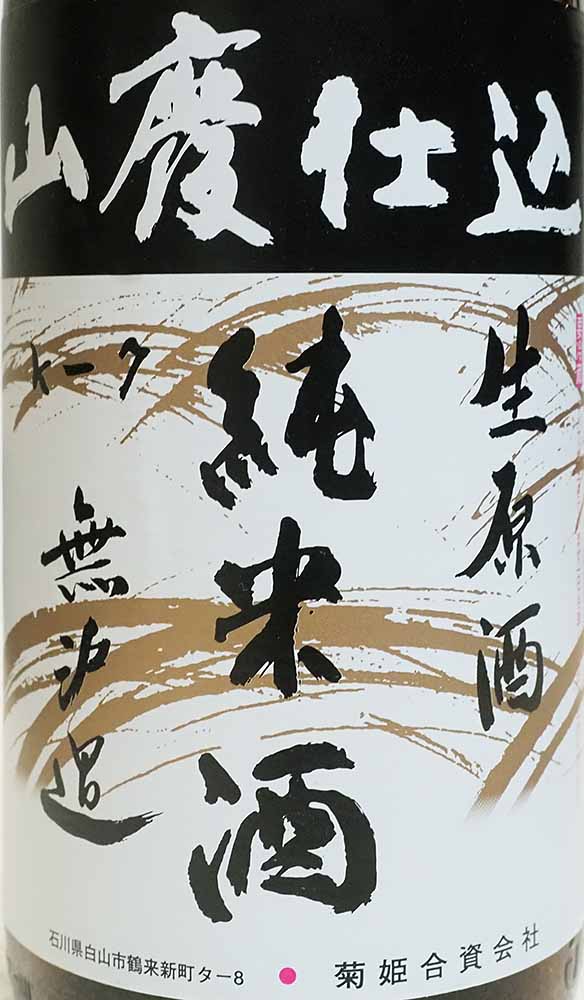 山廢仕込
生原酒
純米酒
無沪過
石川県白山市鶴来新町タ−8
菊姫合資会社